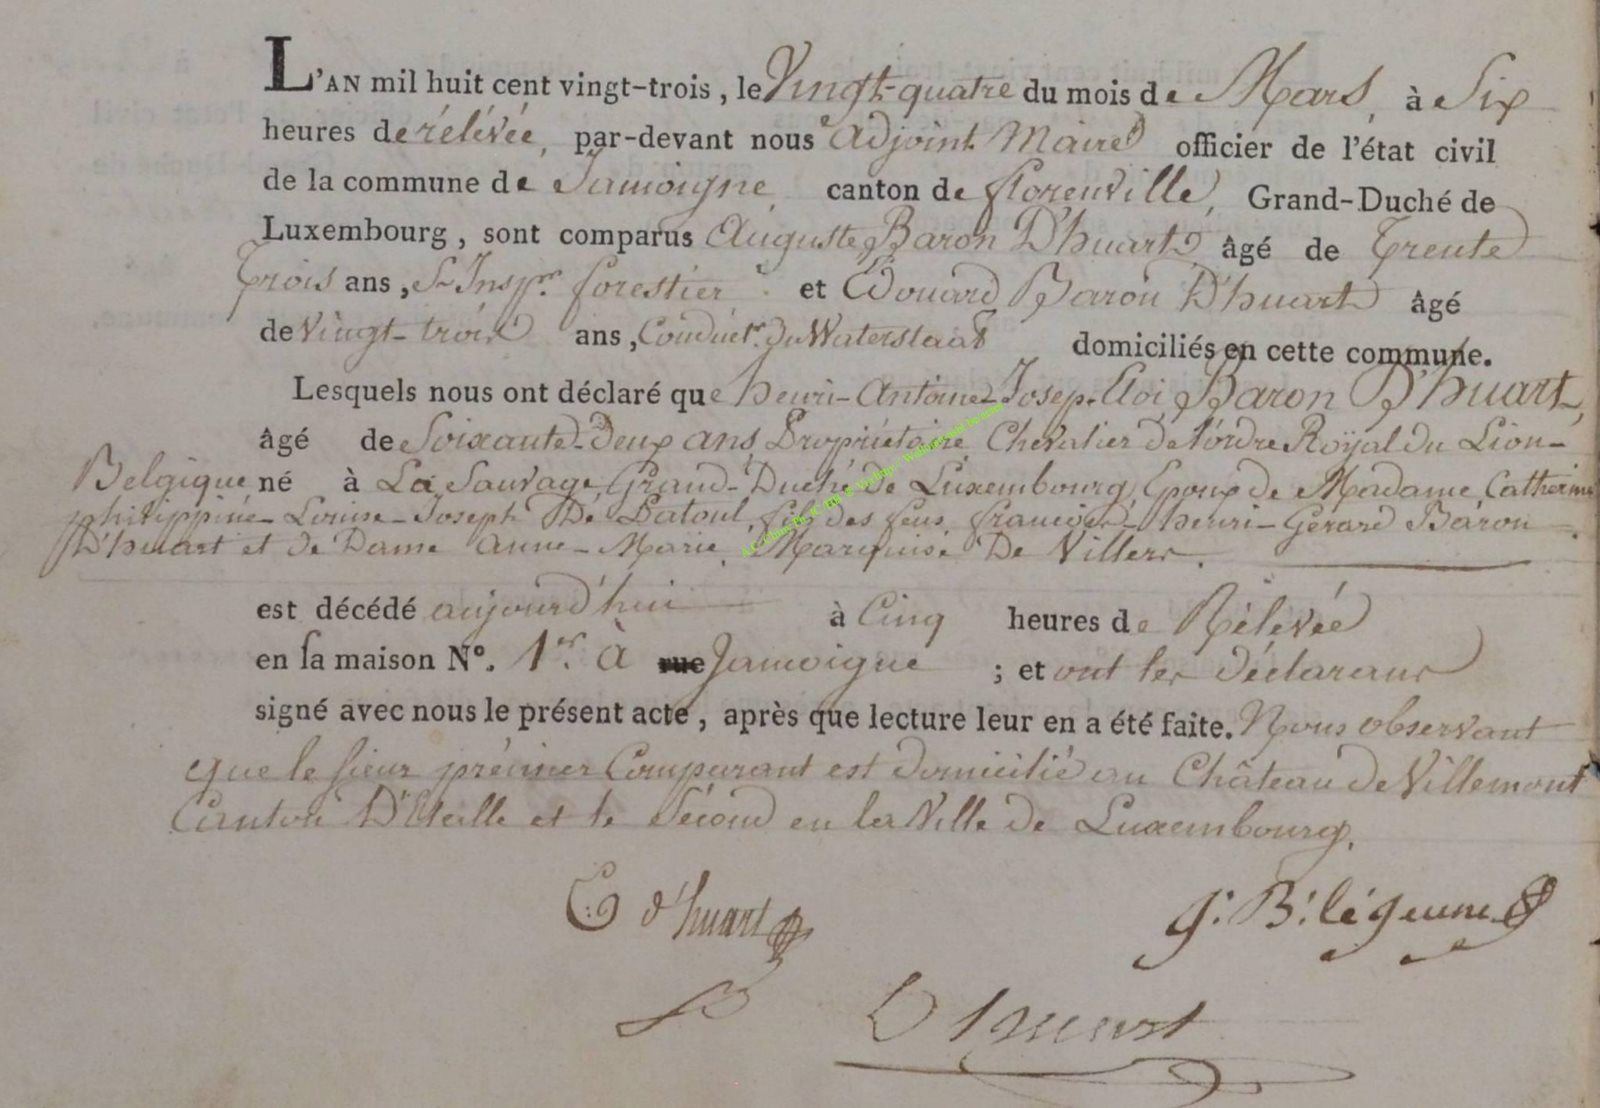 L'AN mil huit cent vingt-trois, le Vingt-quatre du mois de Mars, à Six
heures de rélévée, par-devant nous Adjoint Maire officier de l'état civil
de la commune de Jamoigne, canton de florenville, Grand-Duché de
Luxembourg, sont comparus Auguste Baron D'huart, âgé de Trente
Trois ans, Sr Inspr. forestier et Edouard Baron D'huart âgé
de Vingt-trois ans, Conduct.r du Waterstaat domiciliés en cette commune.
Lesquels nous ont déclaré que henri-Antoine-Josep-Eloi Baron D'huart,
âgé de Soixante-Deux ans, Propriétaire, Chevalier de l'ordre Royal du Lion-
Belgique, né à La Sauvage, Grand-Duché de Luxembourg, Epoux de Madame Catherine
philippine-Louise-Joseph De Patoul, fils des feus françois-henri-Gérard Baron
D'huart et de Dame Anne-Marie, Marquise De Villers.
est décédé aujourd'hui à Cinq heures de Rélévée
en sa maison N°. 1er. à rue Jamoigne ; et ont les déclarans
signé avec nous le présent acte, après que lecture leur en a été faite. Nous observant
que le sieur prémier Comparant est domicilié au Château de Villemont
Canton D'Etalle et le Sécond en la Ville de Luxembourg.
E d'huart
g: B: légeune
D'huart